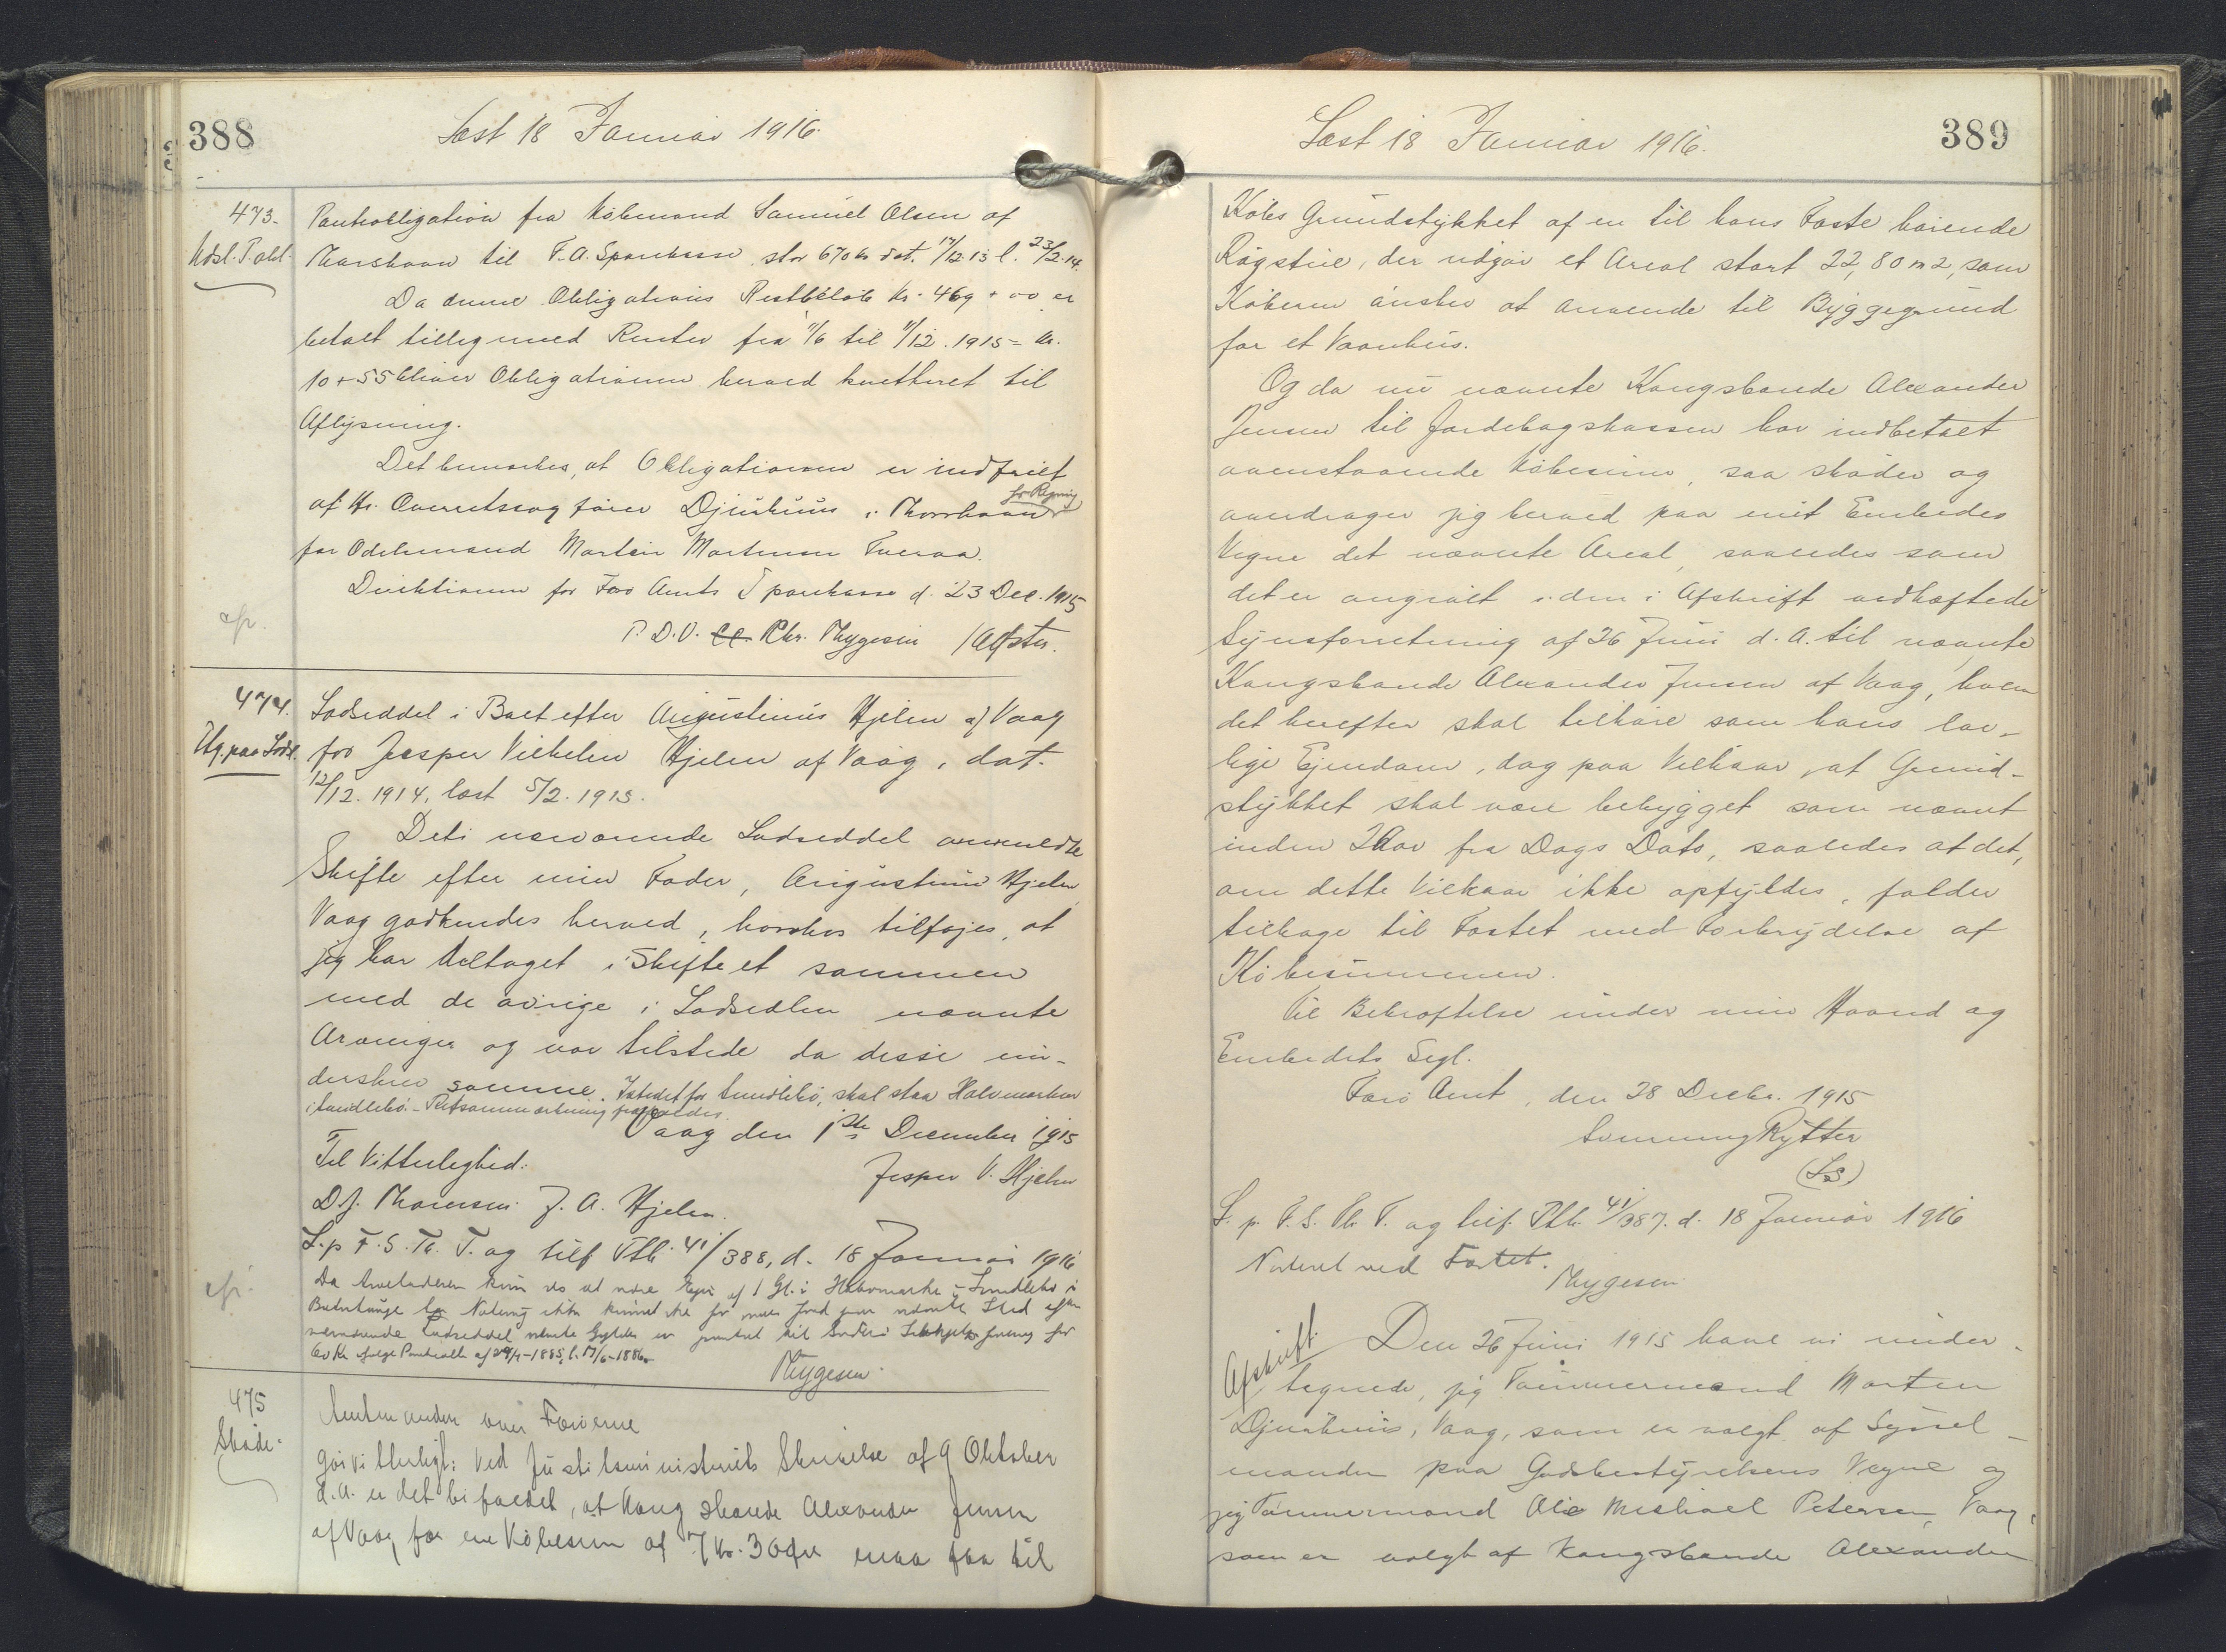 388
Læst 18 Januar 1916.
473.
Udsl. P. obl.
Panteobligation fra Købmand Samuel Olsen af
Thorshavn til F. A. Sparekasse stor 670 Kr dat. 17/12 13 l. 23/2. 14.
Da denne Obligations Restbeløb Kr. 469 + 00 er
betalt tilligemed Renter fra 11/6 til 11/12. 1915 = Kr.
10 + 55 bliver Obligationen herved kvitteret til
Aflysning.
Det bemærkes, at Obligationen er indfriet
af Hr. Overretssagfører Djurhuus i Thorshavn for Regning
for Odelsmand Morten Mortensen Tveraa.
Direktionen for Færø Amts Sparekasse d. 23 Dec. 1915
P. D. V. Chr. Thygesen /
cfr.
474.
Lodseddel i Boet efter Augustinus Hjelm af Vaag
Tilg. paa Lods.
for Jesper Vilhelm Hjelm af Vaag, dat.
12/12. 1914, læst 5/2. 1915.
Det i nærværende Lodseddel ommeldte
Skifte efter min Fader, Augustinus Hjelm
Vaag godkendes herved, hvorhos tilføjes, at
jeg har deltaget i Skiftet sammen
med de øvrige i Lodsedlen nævnte
Arvinger og var tilstede da disse un-
derskrev samme. Istedet for Sundlebø, skal staa Halvmarken
i Sundlebø. - Retsanmærkning frafaldes.
Vaag den 1ste December 1915
Til Vitterlighed:
Jesper V. Hjelm
D. J. Thomsen. J. A. Hjelm.
L. p. F. S. Th. T. og tilf. Ptb. 41/388, d. 18 Januar 1916
cfr.
Da Arveladeren kun ses at være Ejer af 1 Gl. i Halvmarke i Sundlebø i
nærværende Lodseddel nævnte Gylden er pantsat til
60 Kr ifølge Panteobl. af
Thygesen.
475
Skøde.
Amtmanden over Færøerne
Gør vitterligt: Ved Justitsministeriets Skrivelse af 9 Oktober
d. A. er det bifaldet, at Kongsbonde Alexander Jensen
af Vaag for en Købesum af 7 Kr. 30 Øre maa faa til
389
Læst 18 Januar 1916.
Købs Grundstykket af en til hans Fæste hørende
Røgstue, der udgør et Areal stort 22,80 m2, som
Køberen ønsker at anvende til Byggegrund
for et Vaanhus.
Og da nu nævnte Kongsbonde Alexander
Jensen til Jordebogskassen har indbetalt
ovenstaaende Købesum, saa skøder og
overdrager jeg herved paa mit Embedes
Vegne det nævnte Areal, saaledes som
det er angivet i den i Afskrift vedhæftede
Synsforretning af 26 Juni d. A. til nævnte
Kongsbonde Alexander Jensen af Vaag, hvem
det herefter skal tilhøre som hans lov-
lige Ejendom, dog paa Vilkaar, at Grund-
stykket skal være bebygget som nævnt
inden 2 Aar fra Dags Dato, saaledes at det,
om dette Vilkaar ikke opfyldes, falder
tilbage til Fæstet med Forbrydelse af
Købesummen.
Til Bekræftelse under min Haand og
Embedets Segl.
Færø Amt, den 28 Decbr. 1915
Svenning Rytter
(LS)
L. p. F. S. Th. T. og tilf. Ptb. 41/387. d. 18 Januar 1916
Noteret ved Fæstet.
Thygesen
Afskrift.
Den 26 Juni 1915 have vi under-
tegnede, jeg Tømmermand Morten
Djurhuus, Vaag, som er valgt af Syssel-
manden paa Godsbestyrelsens Vegne og
jeg Tømmermand Ole Michael Petersen, Vaag,
som er valgt af Kongsbonde Alexander